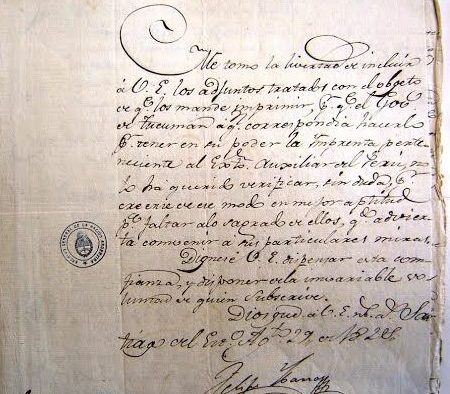 Me tomo la livertad de incluir
á V. E. los adjuntos tratados con el objeto
de qe. los mande imprimir, pr. qe. el Gob
de Tucuman á qn. correspondia hacerlo
pr. tener en su poder la Imprenta perte-
neciente al Exto. Auxiliar del Perú, no
lo ha querido verificar, sin duda, pr.
creerse de ese modo en mejor aptitud
pa. faltar alo sagrado de ellos, qdo. advier-
ta convenir a sus particulares miras.
Dignese V. E. dispensar esta con-
fianza, y disponer de la invariable vo-
luntad de quien Subscrive.
Dios gue. á V. E. ms. as. San-
tiago del Eso. Ago. 29, de 1821
Felipe Ibarra